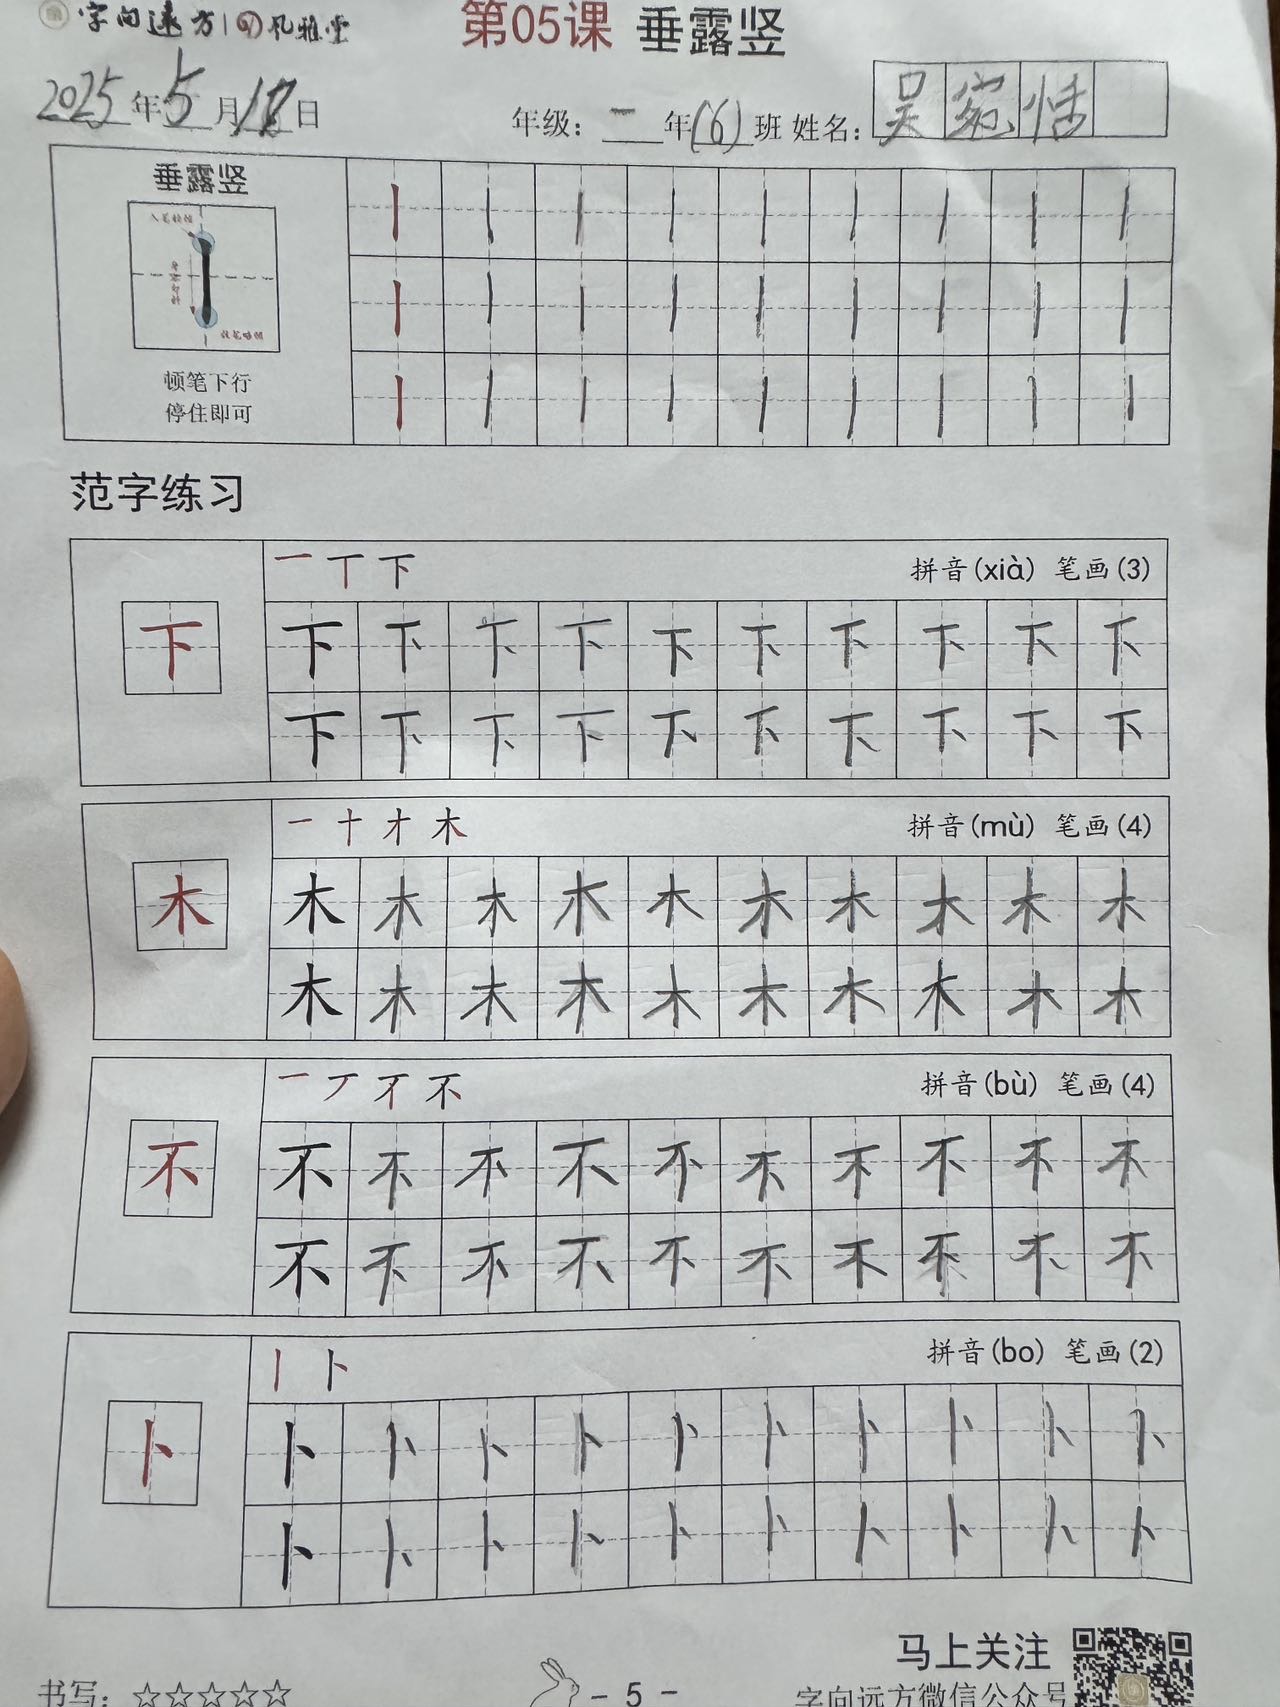 字向远方 孔雅堂
第05课 垂露竖
2025年5月18日 年级：二年(6)班 姓名：吴宛恬
垂露竖
顿笔下行
停住即可
范字练习
一 丅 下 拼音(xià) 笔画(3)
下 下 下 下 下 下 下 下 下 下 下
下 下 下 下 下 下 下 下 下 下
一 十 才 木 拼音(mù) 笔画(4)
木 木 木 木 木 木 木 木 木 木 木
木 木 木 木 木 木 木 木 木 木
一 丆 不 拼音(bù) 笔画(4)
不 不 不 不 不 不 不 不 不 不 不
不 不 不 不 不 不 不 不 不 不
丨 卜 拼音(bo) 笔画(2)
卜 卜 卜 卜 卜 卜 卜 卜 卜 卜 卜
卜 卜 卜 卜 卜 卜 卜 卜 卜 卜
马上关注
书写：☆☆☆☆☆ - 5 - 字向远方微信公众号